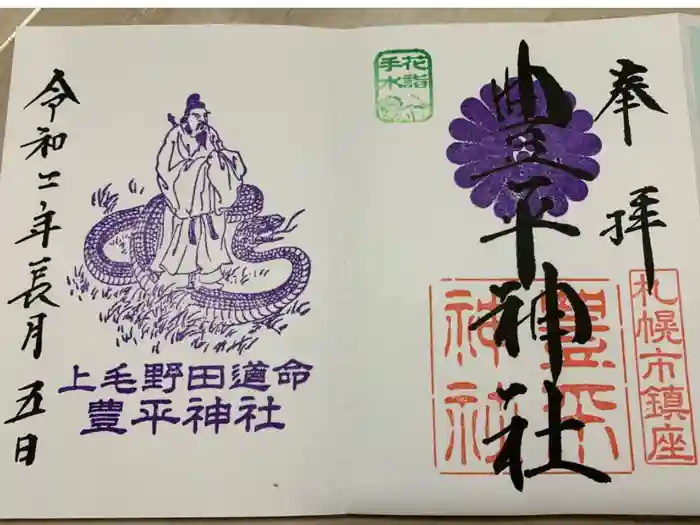 奉拝
豊平神社
花詣
手水
豊平
神社
札幌市鎮座
上毛野田道命
豊平神社
令和二年長月五日